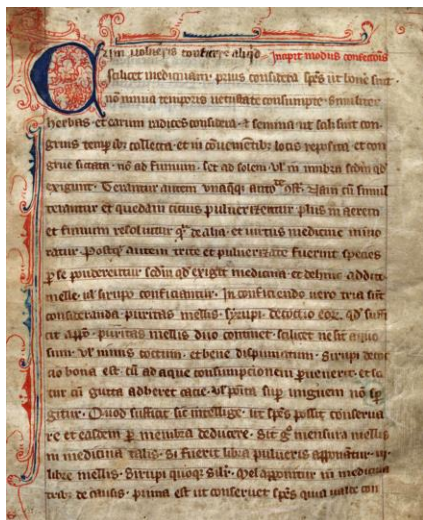 Cum volueris conficere aliqd Incipit modus confectionis
scilicet medicinam. prius considera spēs ut bone sint.
nō nimia temporis uetustate consumpte. Similiter
herbas. et earum radices considera. et semina ut sāl sint con
gruis temp̄ib; collecta. et in cōuenientib; locis reposita. et con
grue siccata. nō ad fumum. set ad solem. ul in umbra scdm qd
exigunt. Terantur autem unaqq;
terantur et quedam citius pulueriȥentur plus in aerem
et fumum resoluitur qͣ de alia. et uirtus medicine mino
ratur. Postqͣ autem trite et pulueriȥate fuerint species
p se ponderentur scdm qd exigit medicina et dehinc addito
melle. ul sirupo conficiantur. In conficiendo uero tria sūt
consideranda. puritas mellis. syrupi. decoctio eor. qd suffi
cit appō. puritas mellis duo continet. scilicet ne sit aquo
sum. ul minus coctum. et bene dispumatum. Sirupi decoc
tio bona est. cū ad aque consumpcionem puenerit. et sc
tur cū gutta adheret cacie. ul posita sup unguem nō sp
gitur. Quod sufficiat sic intellige. ut spēs possit conserua
re et easdem p membra deducere. Sit gͦ mensura mellis
in medicina talis. Si fuerit libra pulueris apponātur .iii.
libre mellis. Sirupi quoqͥ silr. Mel apponitur in medicina
trib; de causis. prima est ut conseruet spēs quia ualte con